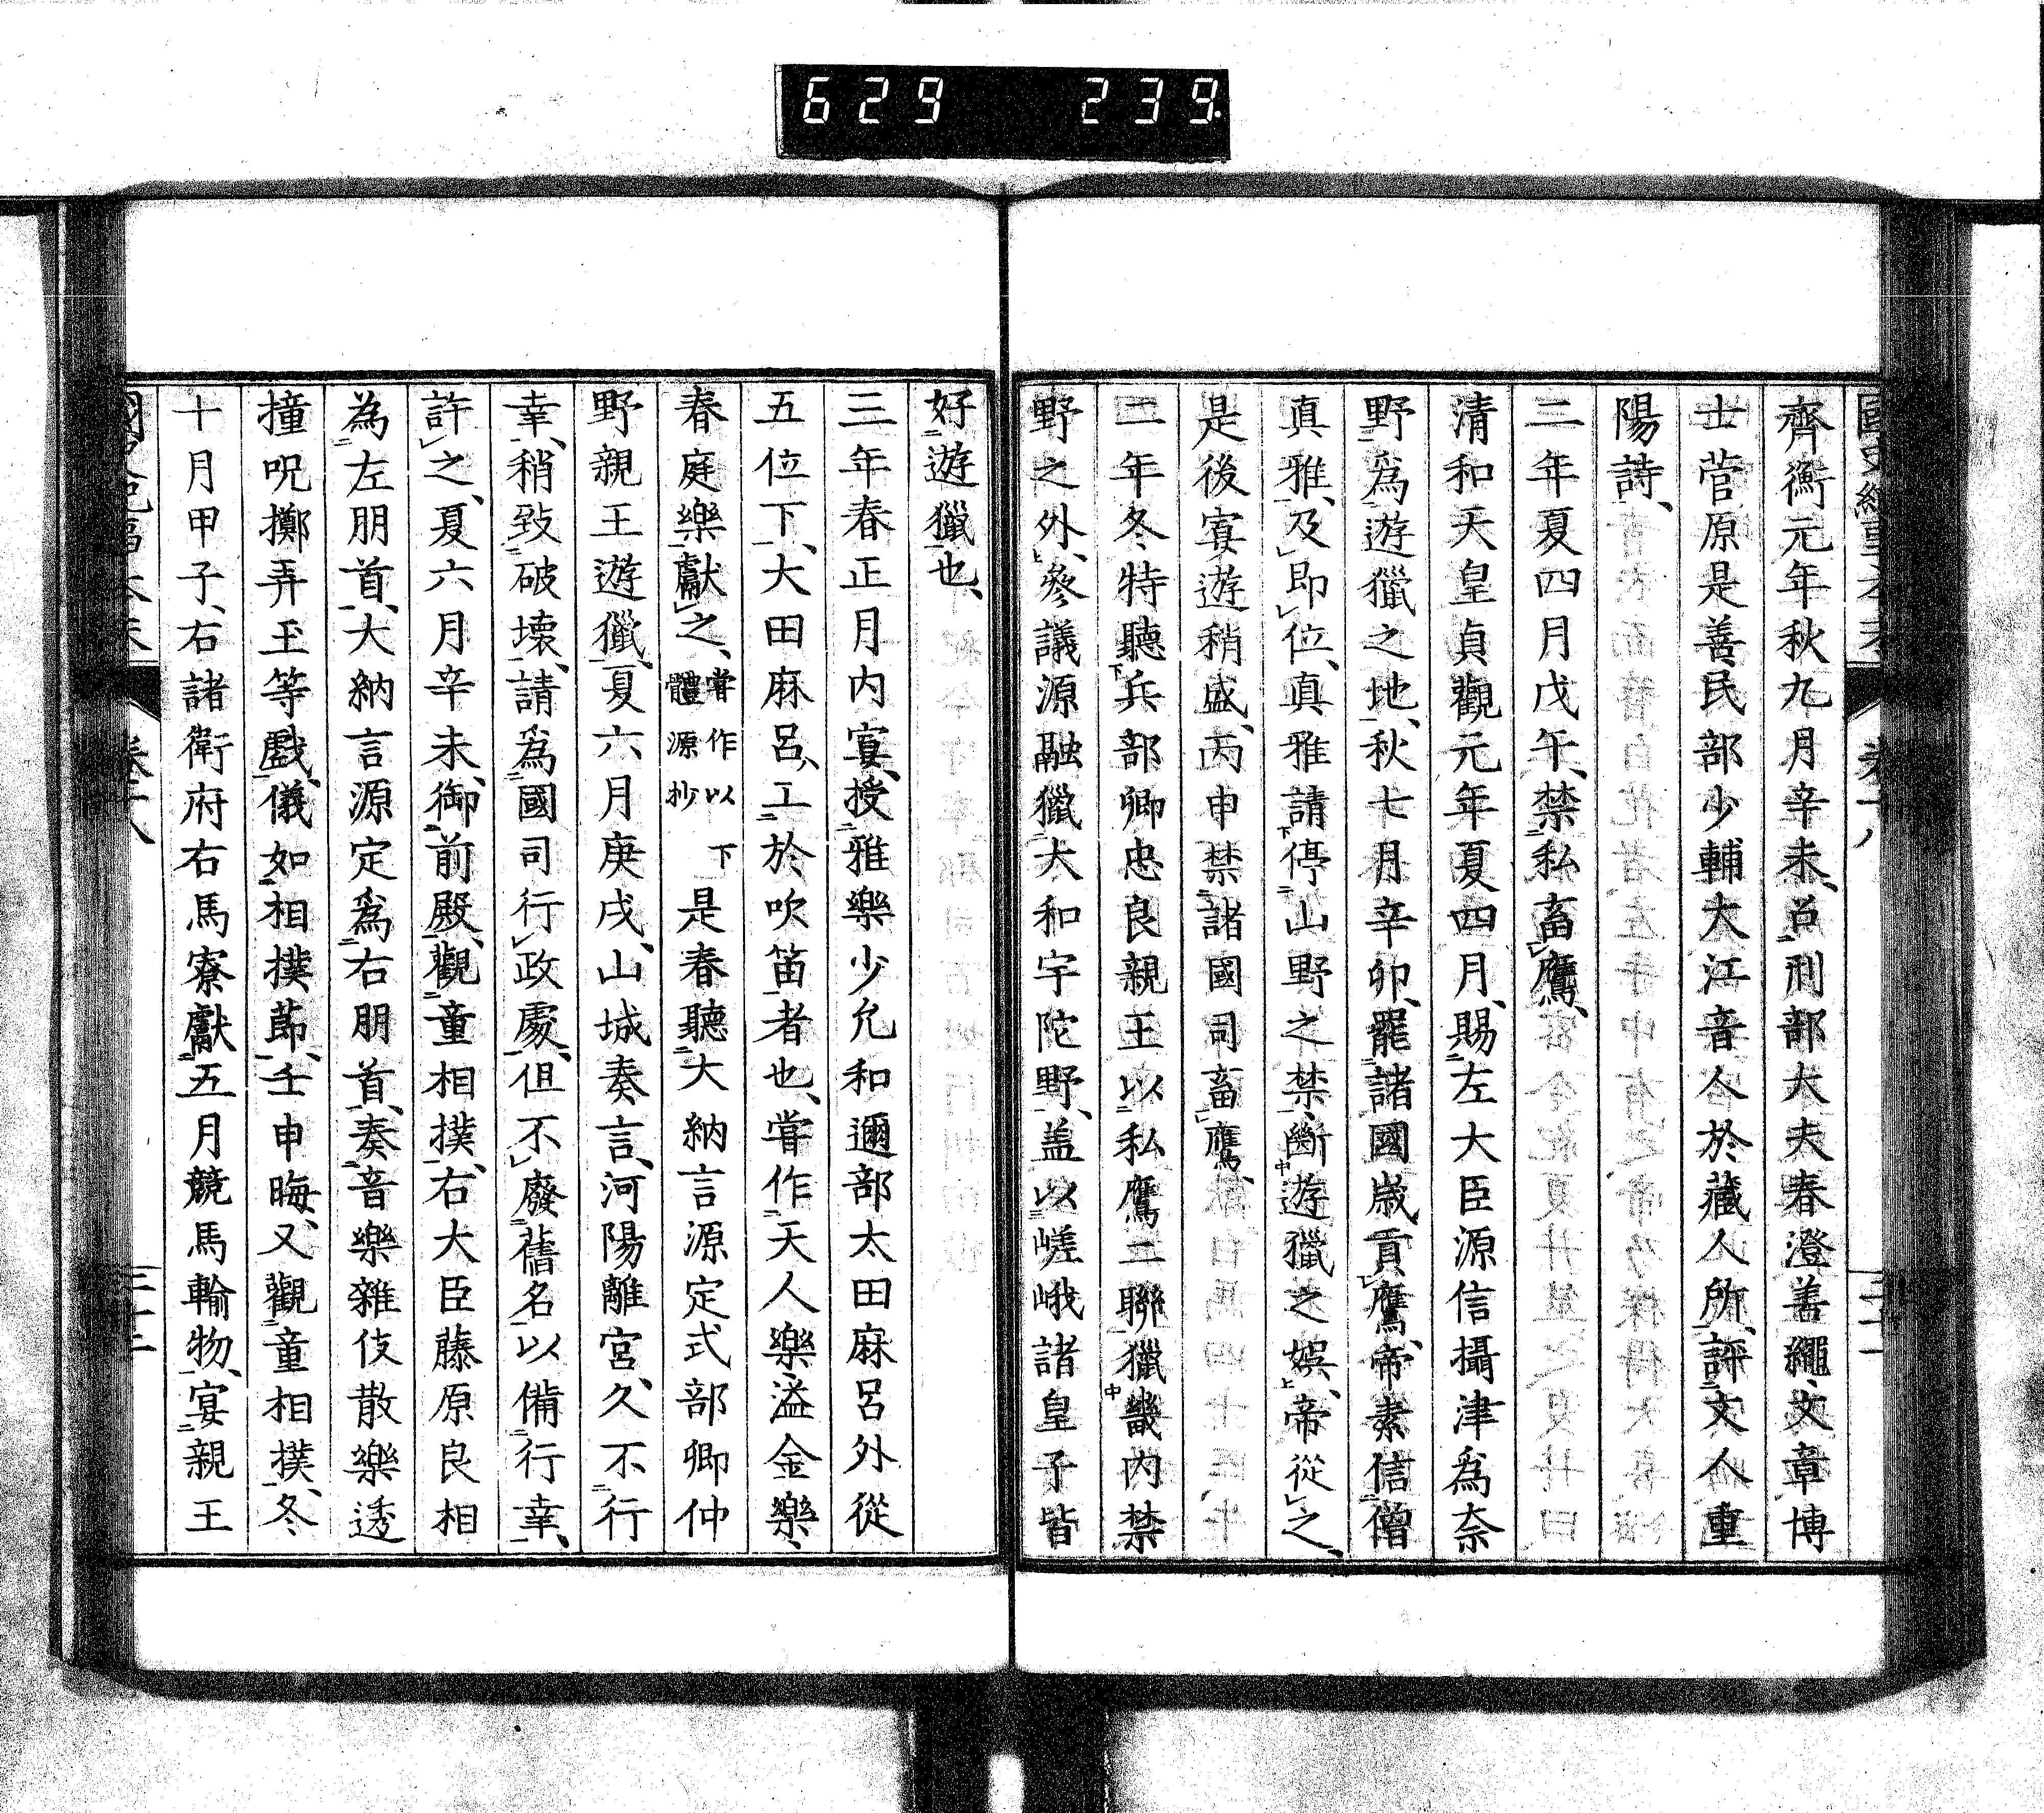 629 239.
齊衡元年秋九月辛未、召刑部大夫春澄善繩、文章博
士菅原是善、民部少輔大江音人於藏人所、評文人重
陽詩、
三年夏四月戊午、禁私畜鷹、
清和天皇貞觀元年夏四月、賜左大臣源信攝津爲奈
野爲遊獵之地、秋七月辛卯、罷諸國歲貢鷹、帝素信僧
真雅、及即位、真雅請停山野之禁、斷遊獵之娯、帝從之、
是後宴遊稍盛、丙申禁諸國司畜鷹、
二年冬特聽兵部卿忠良親王以私鷹二聯獵畿內禁
野之外、參議源融獵大和宇陀野、盖以嵯峨諸皇子皆
好遊獵也、
三年春正月內宴、授雅樂少允和邇部太田麻呂外從
五位下、大田麻呂、工於吹笛者也、嘗作天人樂、溢金樂、
春庭樂獻之、嘗作以下
體源抄
是春聽大納言源定式部卿仲
野親王遊獵、夏六月庚戌、山城奏言、河陽離宮、久不行
幸、稍致破壞、請爲國司行政處、但不廢舊名、以備行幸、
許之、夏六月辛未、御前殿、觀童相撲、右大臣藤原良相
為左朋首、大納言源定爲右朋首、奏音樂雜伎散樂透
撞呪擲弄玉等戲、儀如相撲節、壬申晦、又觀童相撲、冬
十月甲子、右諸衛府右馬寮獻五月競馬輸物、宴親王